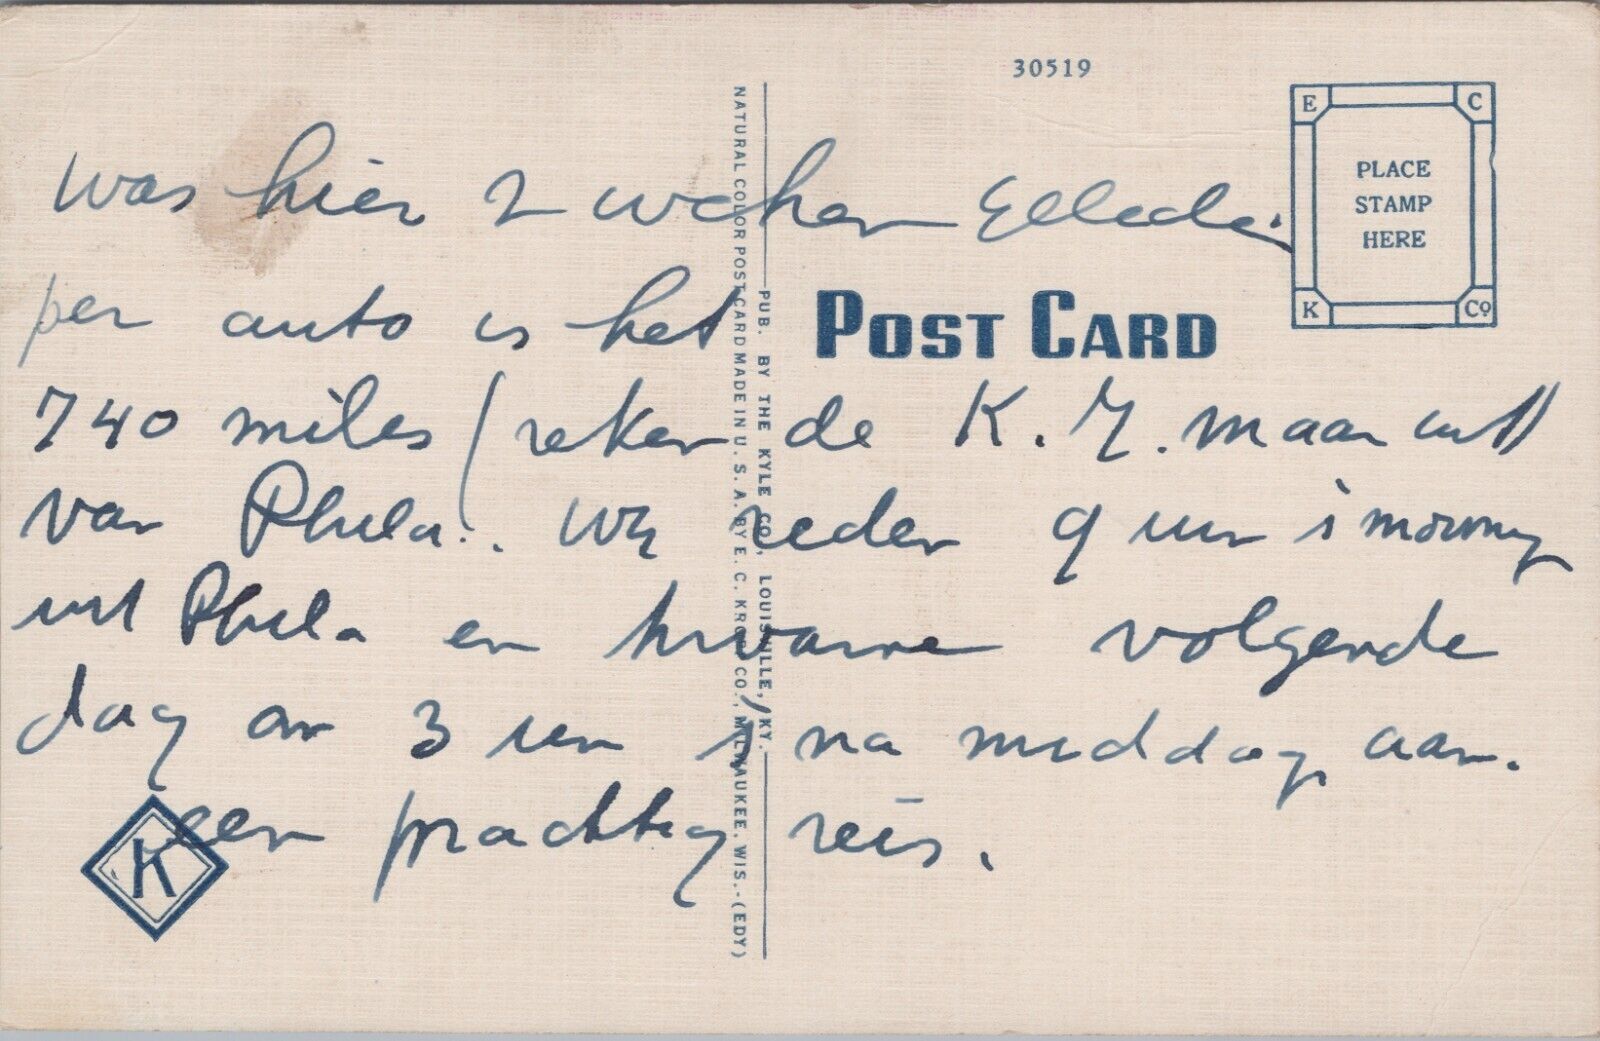 30519
E C
PLACE
STAMP
HERE
K Cº
POST CARD
PUB. BY THE KYLE CO., LOUISVILLE, KY.
NATURAL COLOR POST CARD MADE IN U. S. A. BY E. C. KROPP CO., MILWAUKEE, WIS.-(EDY)
K
Was hier 2 weken
per auto is het
740 miles (reken de K. M. maar uit
van Phila. Wij reden 9 uur
uit Phila en kwamen volgende
dag om 3 uur na middag aan.
een prachtig reis.